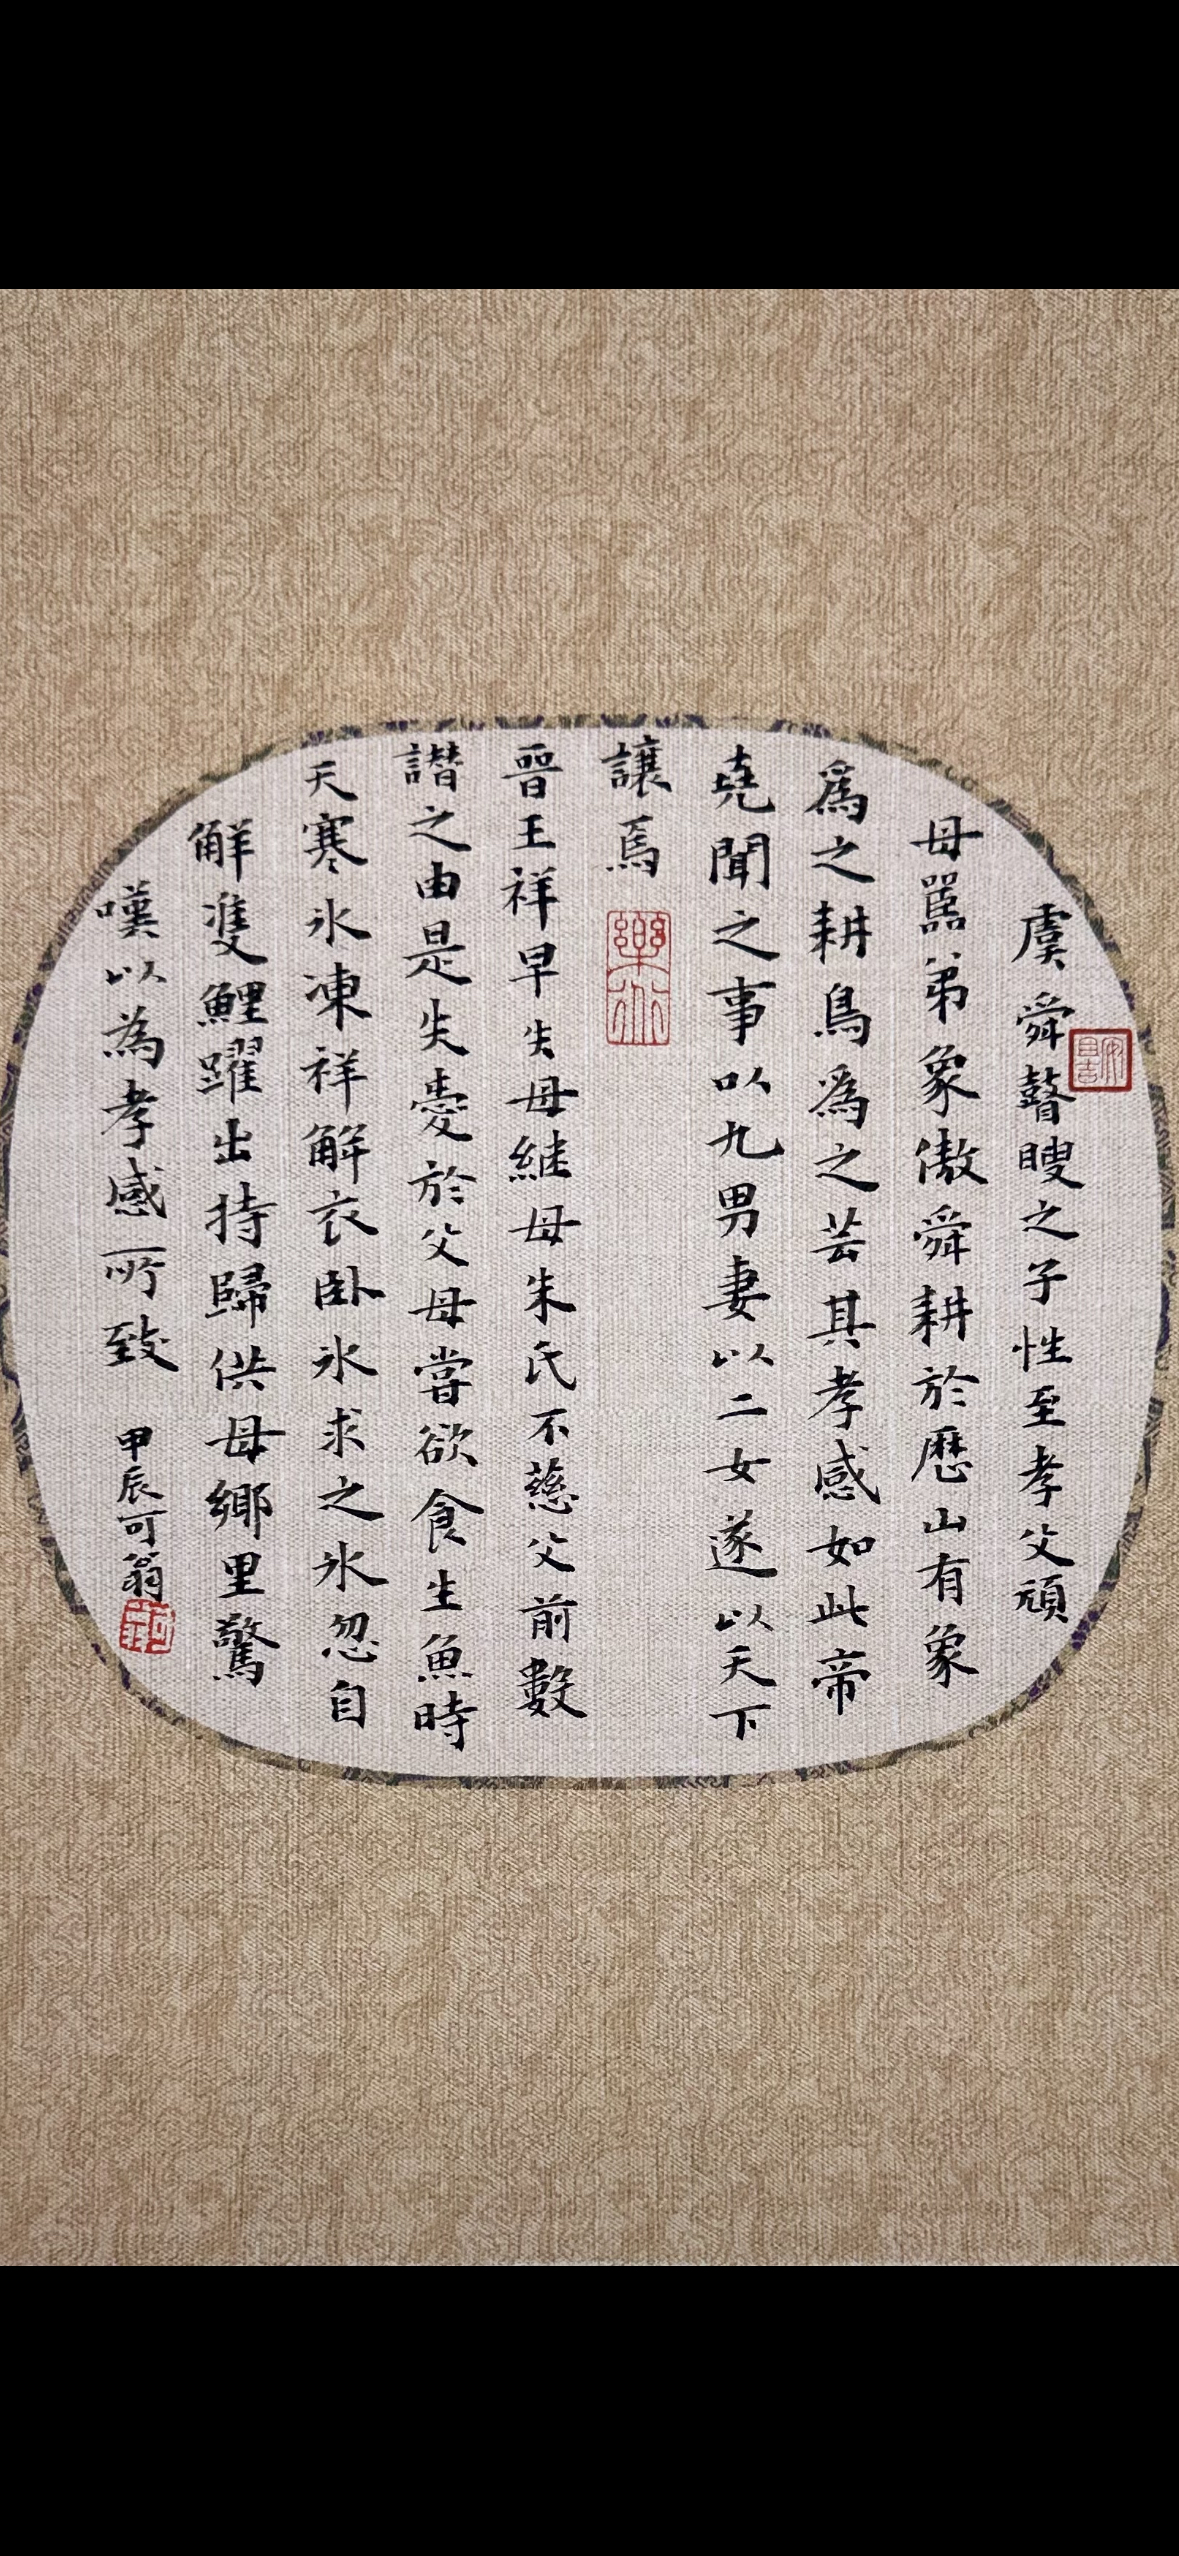 虞舜瞽瞍之子性至孝父頑
母嚚弟象傲舜耕於歷山有象
為之耕鳥為之芸其孝感如此帝
堯聞之事以九男妻以二女遂以天下
讓焉
晉王祥早失母継母朱氏不慈父前數
譖之由是失愛於父母嘗欲食生魚時
天寒氷凍祥解衣臥氷求之氷忽自
解雙鯉躍出持歸供母鄉里驚
嘆以為孝感所致
甲辰可翁